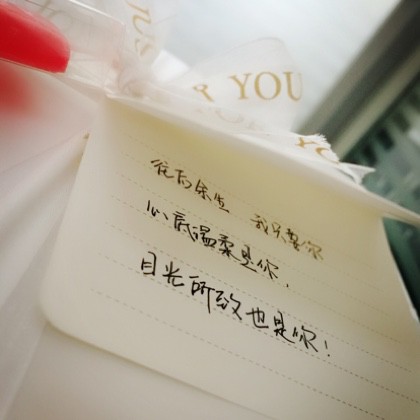 R YOU
往后余生 我只要你
心底温柔是你,
目光所致也是你!